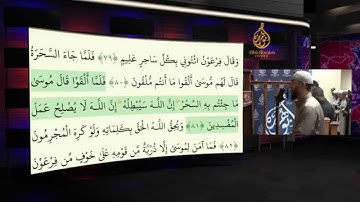 وَقَالَ فِرْعَوْنُ ائْتُونِي بِكُلِّ سَاحِرٍ عَلِيمٍ ﴿٧٩﴾ فَلَمَّا جَاءَ السَّحَرَةُ
قَالَ لَهُم مُّوسَىٰ أَلْقُوا مَا أَنتُم مُّلْقُونَ ﴿٨٠﴾ فَلَمَّا أَلْقَوْا قَالَ مُوسَىٰ
مَا جِئْتُم بِهِ السِّحْرُ إِنَّ اللَّهَ سَيُبْطِلُهُ إِنَّ اللَّهَ لَا يُصْلِحُ عَمَلَ
الْمُفْسِدِينَ ﴿٨١﴾ وَيُحِقُّ اللَّهُ الْحَقَّ بِكَلِمَاتِهِ وَلَوْ كَرِهَ الْمُجْرِمُونَ
﴿٨٢﴾ فَمَا آمَنَ لِمُوسَىٰ إِلَّا ذُرِّيَّةٌ مِّن قَوْمِهِ عَلَىٰ خَوْفٍ مِّن فِرْعَوْنَ